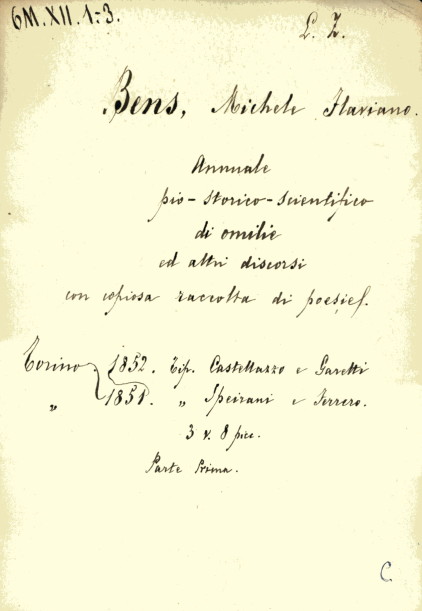 6M.XII.1-3.
L. Z.
Bens, Michele Flaviano.
Annuale
pio-storico-scientifico
di omilie
ed altri discorsi
con copiosa raccolta di poesie.
Torino 1852. Tip. Castellazzo e Garetti
„ 1851. „ Speirani e Ferrero.
3 v. 8 picc.
Parte Prima.
C.